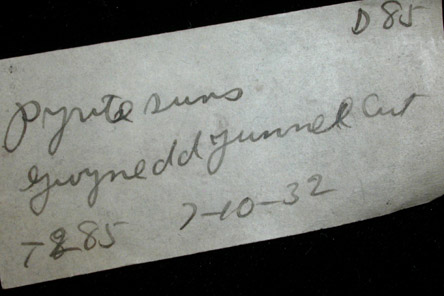 D 85
Pyrite suns
Gwynedd Tunnel Cut
7-10-32